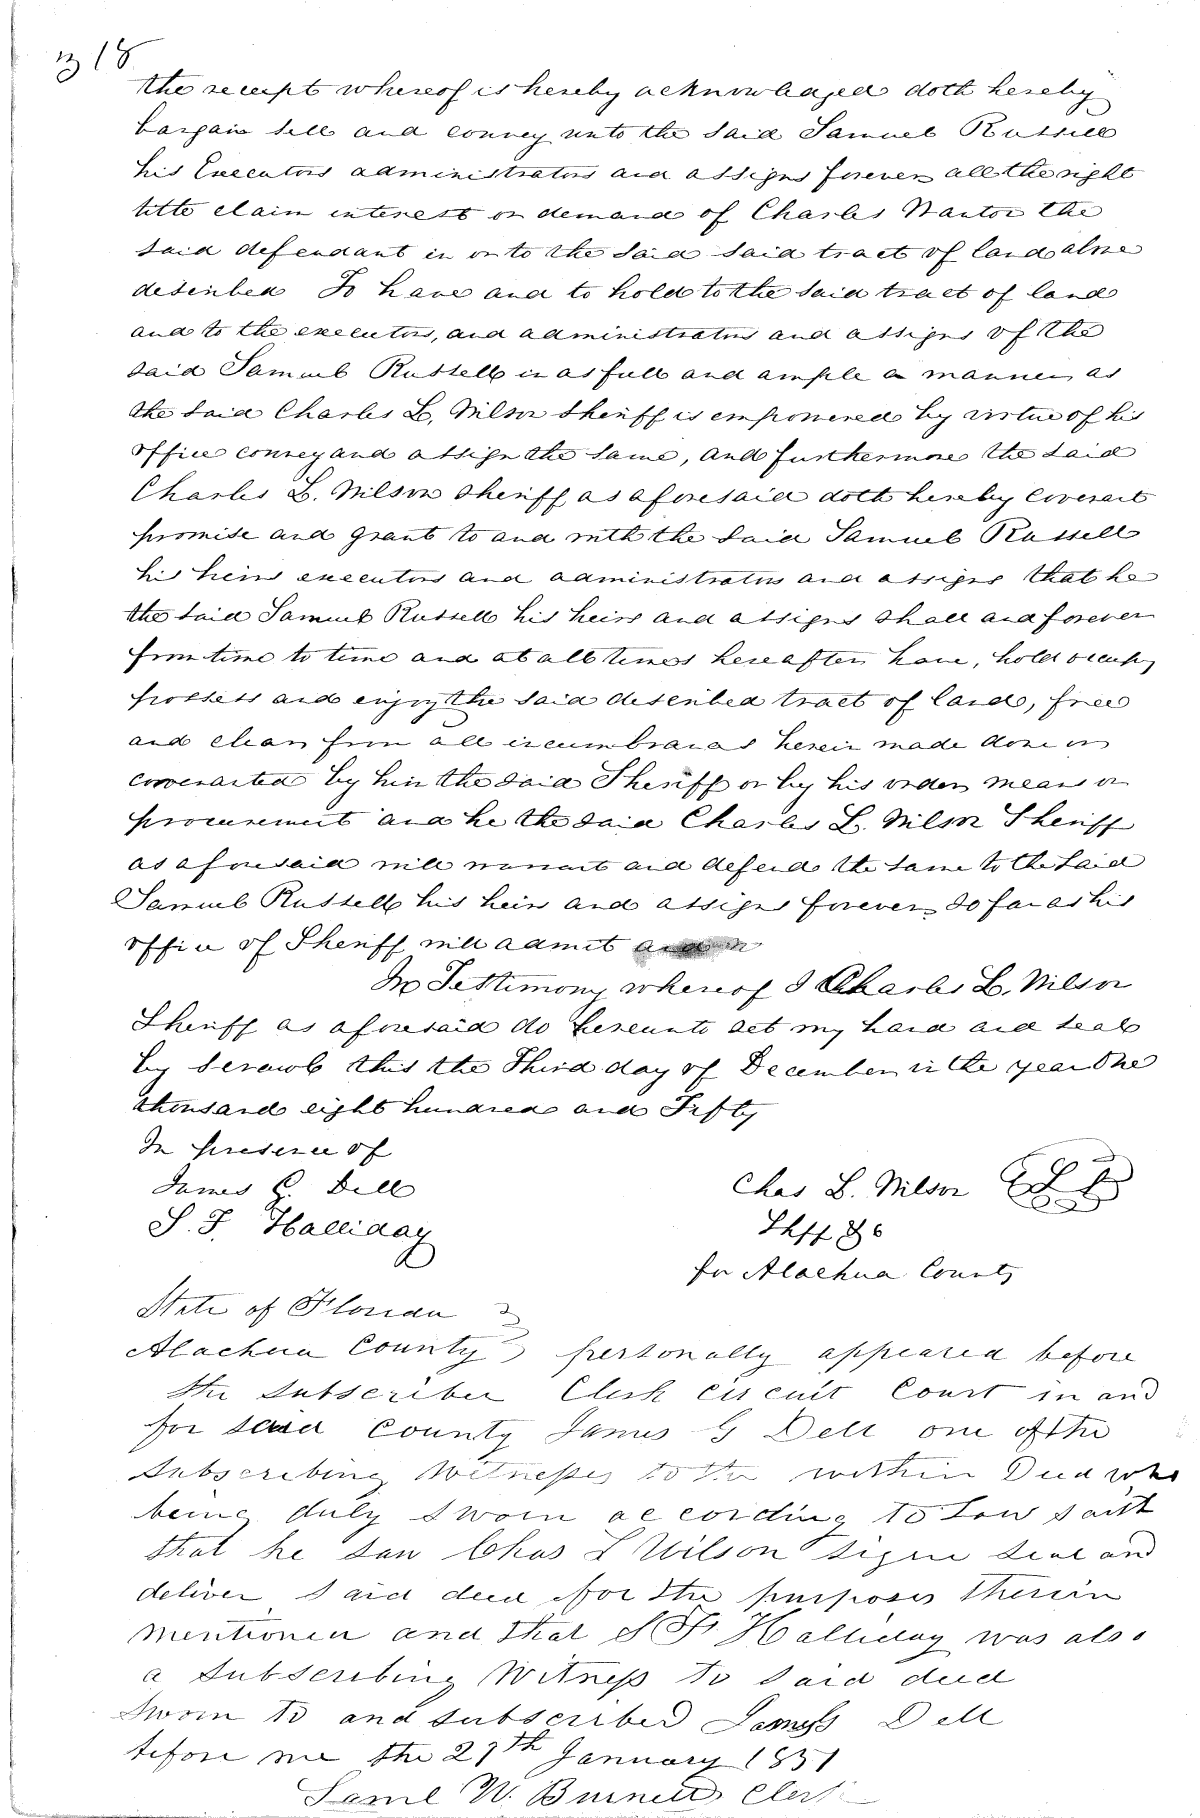 318
the receipt whereof is hereby acknowledged doth hereby
bargain sell and convey unto the said Samuel Russell
his Executors administrators and assigns forever all the right
title claim interest or demand of Charles the
said defendant in or to the said said tract of land above
described To have and to hold to the said tract of land
and to the executors, and administrators and assigns of the
said Samuel Russell in as full and ample a manner as
the said Charles L. Wilson Sheriff is empowered by virtue of his
office convey and assign the same, and furthermore the said
Charles L. Wilson Sheriff as aforesaid doth hereby covenant
promise and grant to and with the said Samuel Russell
his heirs executors and administrators and assigns that he
the said Samuel Russell his heirs and assigns shall and forever
from time to time and at all times hereafter have, hold occupy
possess and enjoy the said described tract of land, free
and clear from all incumbrances herein made done or
covenanted by him the said Sheriff or by his order means or
procurement and he the said Charles L. Wilson Sheriff
as aforesaid will warrant and defend the same to the said
Samuel Russell his heirs and assigns forever so far as his
office of Sheriff will admit
In Testimony whereof I Charles L. Wilson
Sheriff as aforesaid do hereunto set my hand and seal
by scrawl this the Third day of December in the year One
thousand eight hundred and Fifty
In presence of
James G. Dell
S. F. Halliday
Chas L. Wilson
Shff &c
for Alachua County
State of Florida
Alachua County personally appeared before
the subscriber Clerk circuit Court in and
for said County James G Dell one of the
subscribing Witnesses to the within Deed who
being duly sworn according to Law saith
that he saw Chas L Wilson sign seal and
deliver said deed for the purposes therein
mentioned and that S F Halliday was also
a subscribing Witness to said deed
Sworn to and subscribed James G Dell
before me the 27th January 1851
Saml W. Burnett Clerk